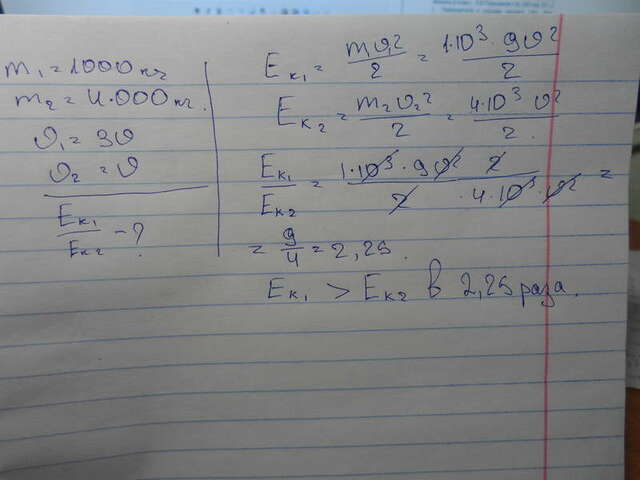 m₁ = 1000 кг
m₂ = 4.000 кг.
υ₁ = 3υ
υ₂ = υ
Eк₁/Eк₂ - ?
Eк₁ = mυ₁²/2 = 1·10³·9υ²/2
Eк₂ = m₂υ₂²/2 = 4·10³ υ²/2.
Eк₁/Eк₂ = 1·10³·9υ² 2/2 ·4·10³·υ² =
= 9/4 = 2,25.
Eк₁ > Eк₂ в 2,25 раза.